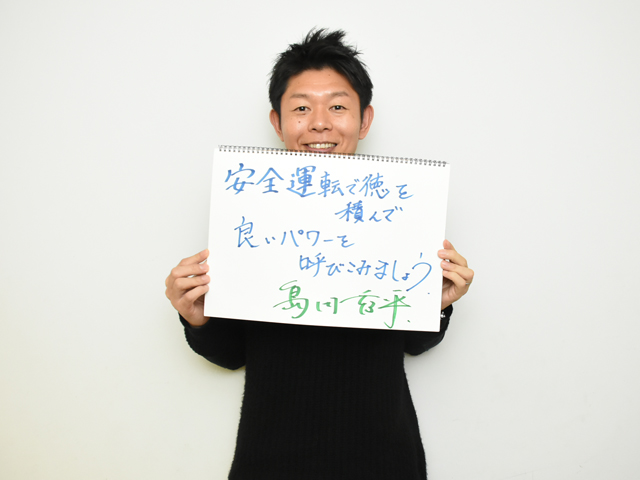 安全運転で徳を
積んで
良いパワーを
呼びこみましょう
島田秀平